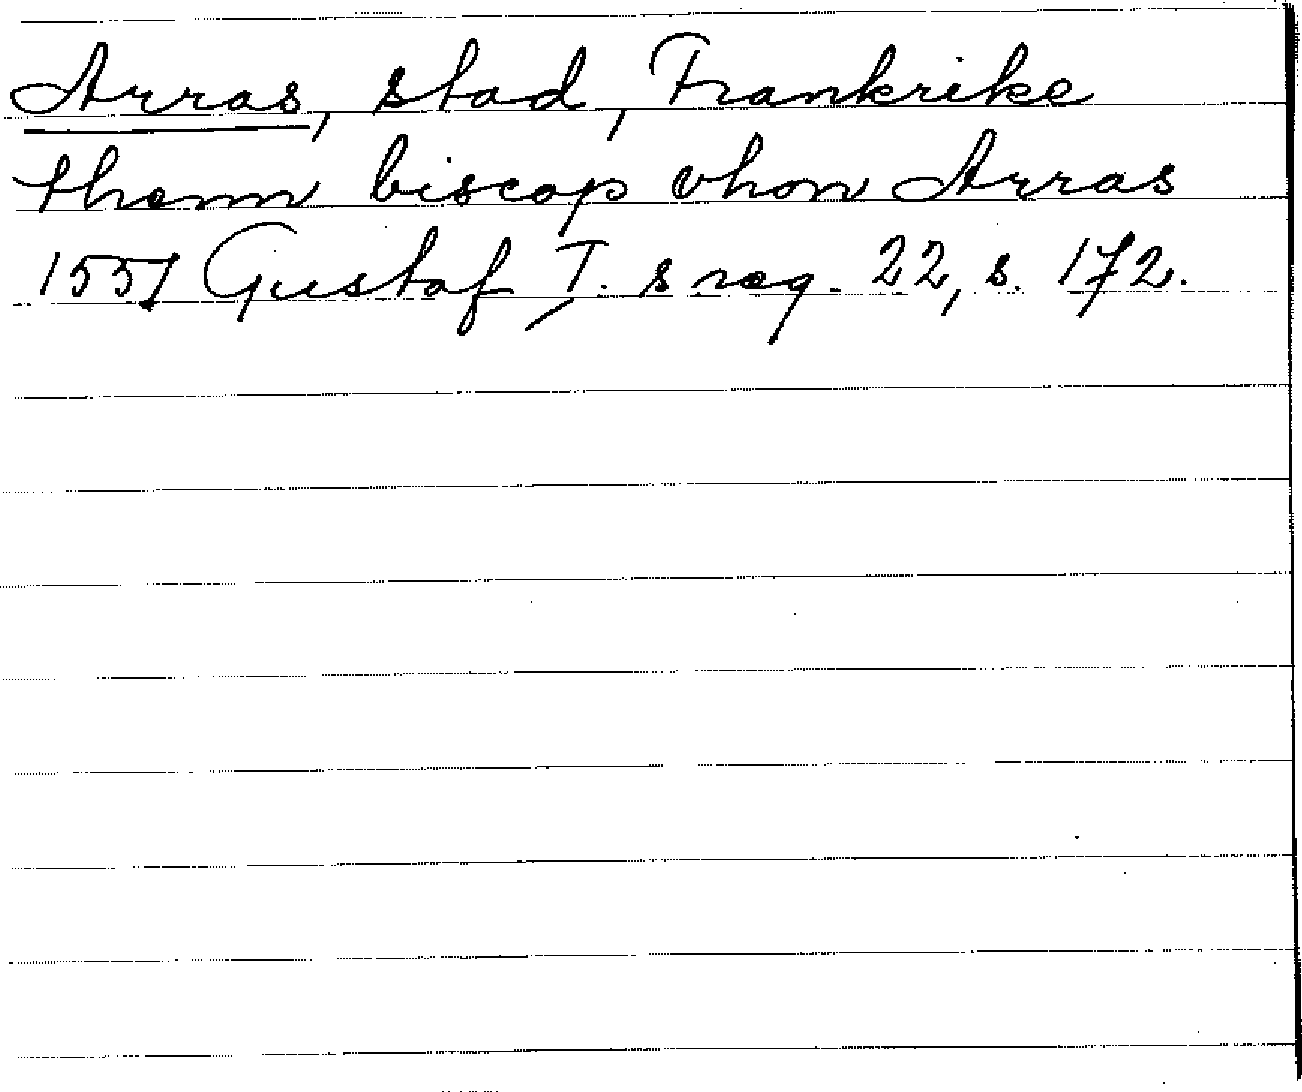 Arras, stad, Frankrike
them biscop vhon Arras
1551 Gustaf I. s reg. 22, s. 172.